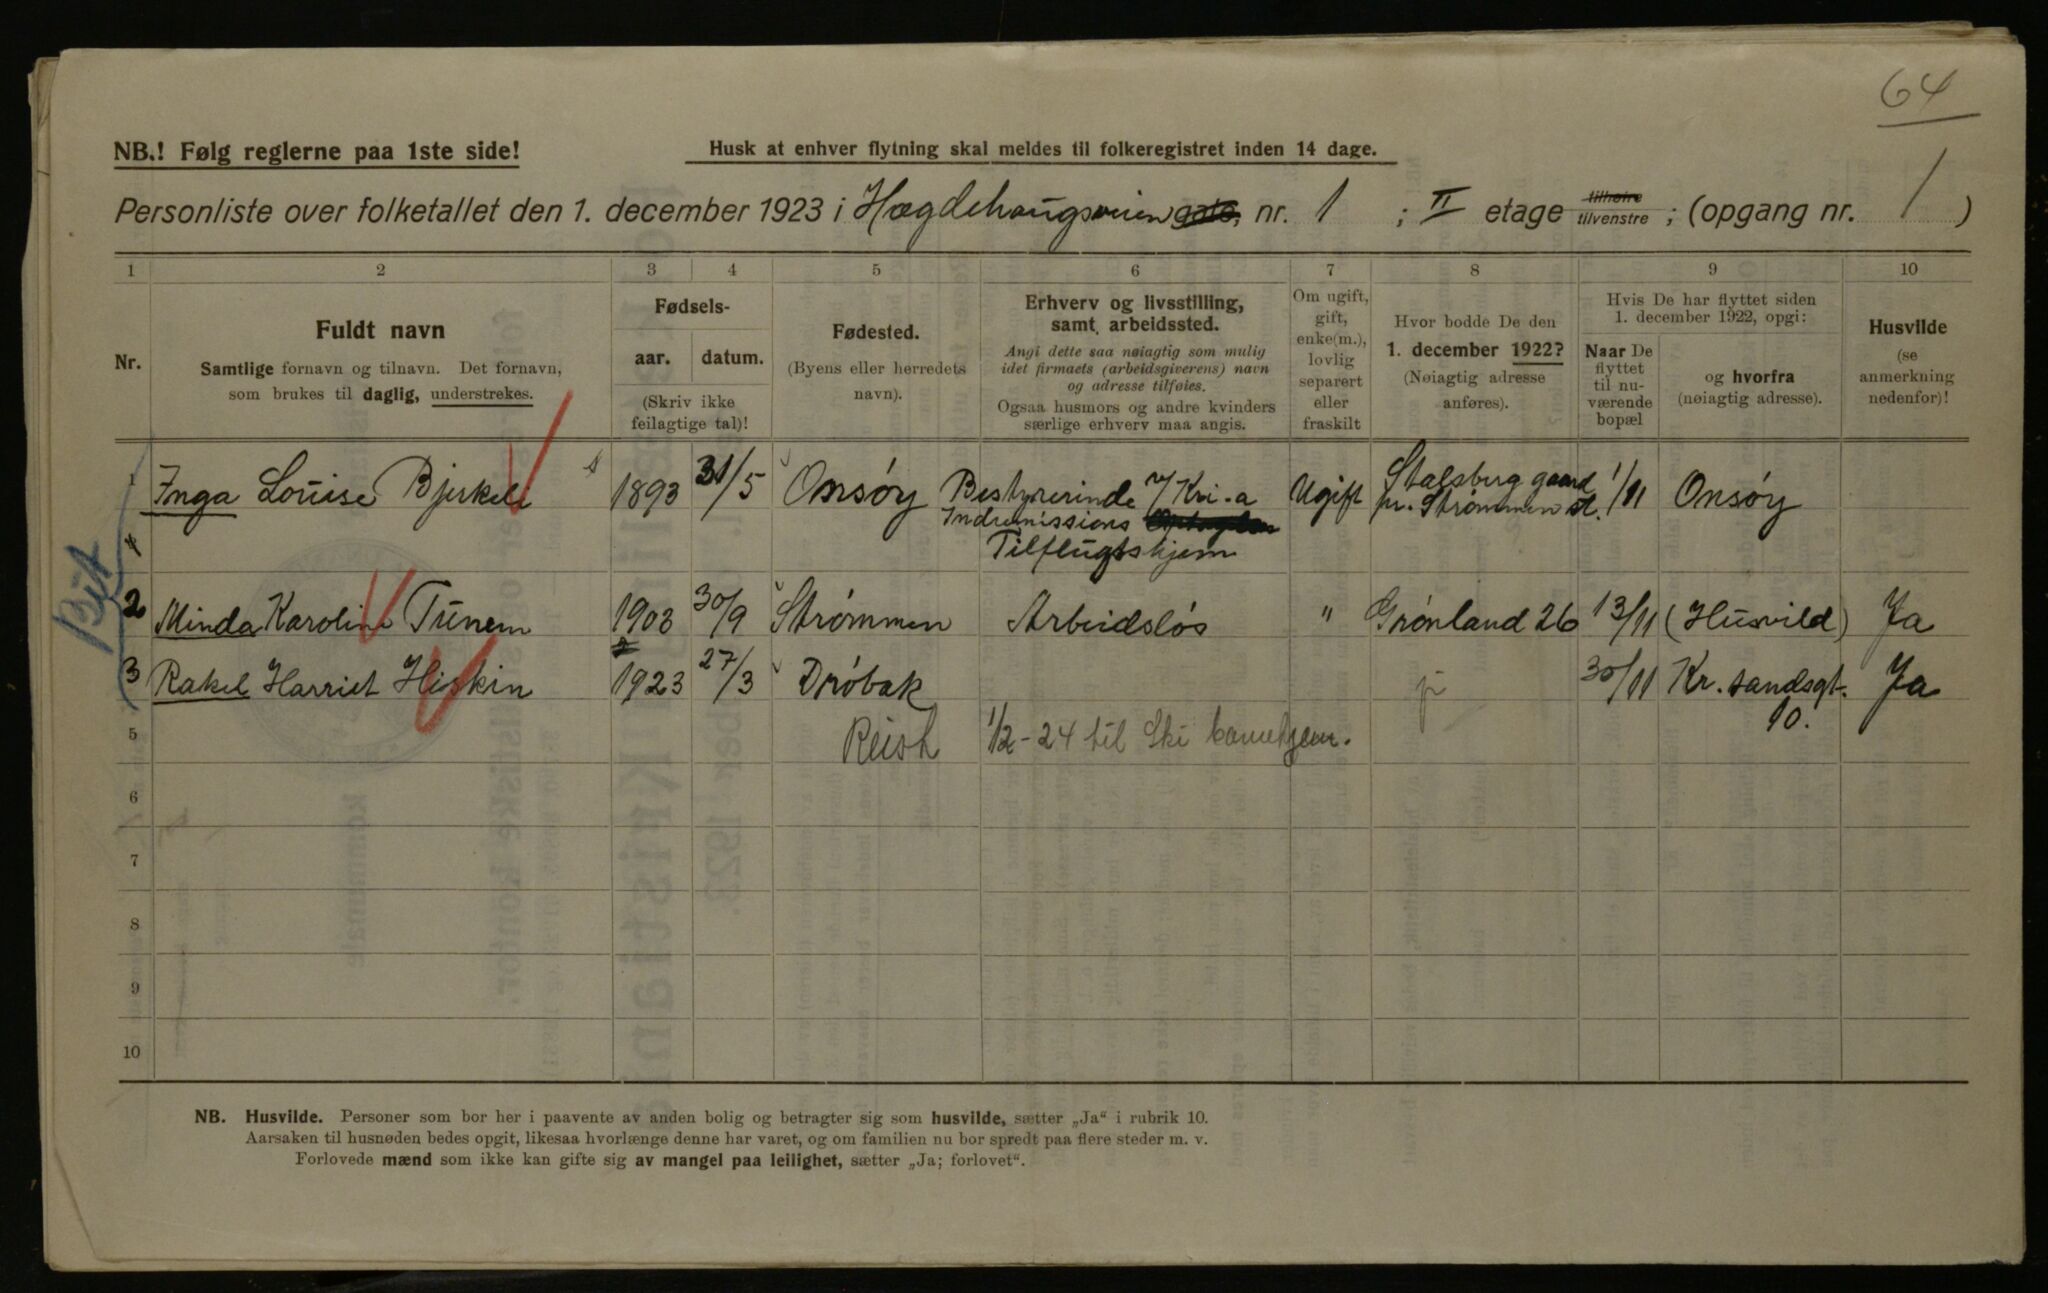 64
NB.! Følg reglerne paa 1ste side!
Husk at enhver flytning skal meldes til folkeregistret inden 14 dage.
Personliste over folketallet den 1. december 1923 i Hægdehaugsveien gate, nr. 1 ; II etage tilhøire tilvenstre ; (opgang nr. 1 )
1 2 3 4 5 6 7 8 9 10
Nr.
Fuldt navn
Samtlige fornavn og tilnavn. Det fornavn,
som brukes til daglig, understrekes.
Fødsels-
aar. datum.
(Skriv ikke
feilagtige tal)!
Fødested.
(Byens eller herredets
navn).
Erhverv og livsstilling,
samt arbeidssted.
Angi dette saa nøiagtig som mulig
idet firmaets (arbeidsgiverens) navn
og adresse tilføies.
Ogsaa husmors og andre kvinders
særlige erhverv maa angis.
Om ugift,
gift,
enke(m.),
lovlig
separert
eller
fraskilt
Hvor bodde De den
1. december 1922?
(Nøiagtig adresse
anføres).
Hvis De har flyttet siden
1. december 1922, opgi:
Naar De
flyttet
til nu-
værende
bopæl
og hvorfra
(nøiagtig adresse).
Husvilde
(se
anmerkning
nedenfor)!
1 Inga Louise Bjerkeli 1893 31/5 Onsøy Bestyrerinde v/ Kri.a Indremissions Tilflugtshjem Ugift Stalsberg gaard pr. Strømmen st. 1/11 Onsøy
2 Minda Karoline Tunem 1903 30/9 Strømmen Arbeidsløs " Grønland 26 13/11 (Husvild) Ja
3 Rakel Harriet Hiskin 1923 27/3 Drøbak 30/11 Kr.sandsgt. 10. Ja
5 Reist 1/2-24 til Ski barnehjem.
6
7
8
9
10
NB. Husvilde. Personer som bor her i paavente av anden bolig og betragter sig som husvilde, sætter „Ja“ i rubrik 10.
Aarsaken til husnøden bedes opgit, likesaa hvorlænge denne har varet, og om familien nu bor spredt paa flere steder m. v.
Forlovede mænd som ikke kan gifte sig av mangel paa leilighet, sætter „Ja; forlovet“.